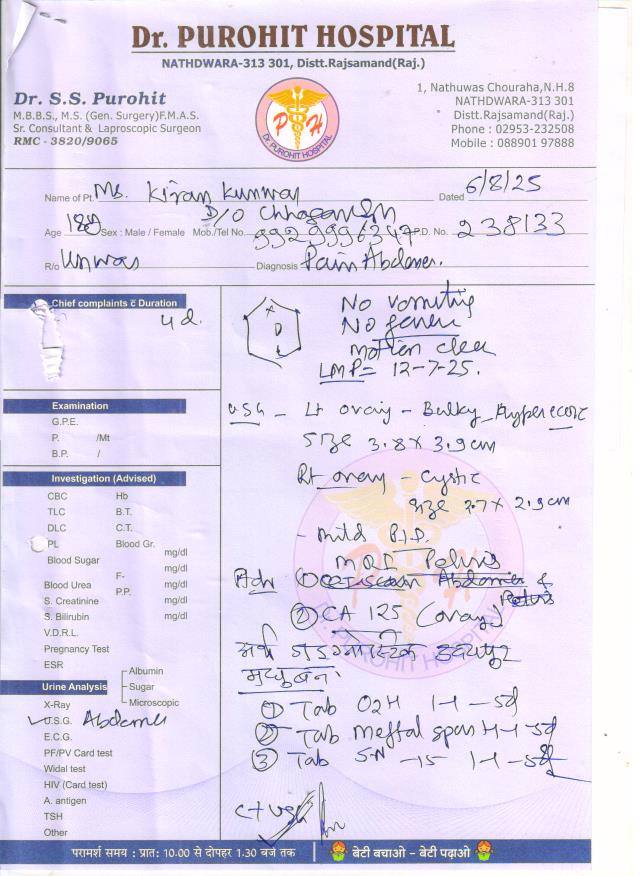 Dr. PUROHIT HOSPITAL
NATHDWARA-313 301, Distt.Rajsamand(Raj.)
Dr. S.S. Purohit
M.B.B.S., M.S. (Gen. Surgery)F.M.A.S.
Sr. Consultant & Laproscopic Surgeon
RMC - 3820/9065
P H
Dr. PUROHIT HOSPITAL
1, Nathuwas Chouraha,N.H.8
NATHDWARA-313 301
Distt.Rajsamand(Raj.)
Phone : 02953-232508
Mobile : 088901 97888
Name of Pt. Ms. Kiran Kunwar Dated 6/8/25
D/O
Age 18y Sex : Male / Female Mob./Tel No. 9929996347 P.D. No. 238133
R/o Unwas Diagnosis Pain Abdomen.
Chief complaints c̄ Duration
4 d.
No vomiting
No fever
motion clear
LMP= 12-7-25.
Examination
G.P.E.
P. /Mt
B.P. /
USG - Lt ovary - Bulky Hyperecoic
Size 3.8 x 3.9 cm
Rt ovary - Cystic
size 3.7 x 2.9 cm
- mild P.I.D.
MRI Pelvis
Adv ① Abdomen & Pelvis
② CA 125 (ovary)
Investigation (Advised)
CBC Hb
TLC B.T.
DLC C.T.
PL Blood Gr.
Blood Sugar mg/dl
F- mg/dl
Blood Urea P.P. mg/dl
S. Creatinine mg/dl
S. Bilirubin mg/dl
V.D.R.L.
Pregnancy Test
ESR
Urine Analysis Albumin
Sugar
Microscopic
X-Ray
U.S.G. Abdomen
E.C.G.
PF/PV Card test
Widal test
HIV (Card test)
A. antigen
TSH
Other
उदयपुर
① Tab O2H 1-1 - 5d
② Tab meftal spas 1-1-1 5d
③ Tab SN -15 1-1 - 5d
परामर्श समय : प्रातः 10.00 से दोपहर 1.30 बजे तक
बेटी बचाओ - बेटी पढ़ाओ